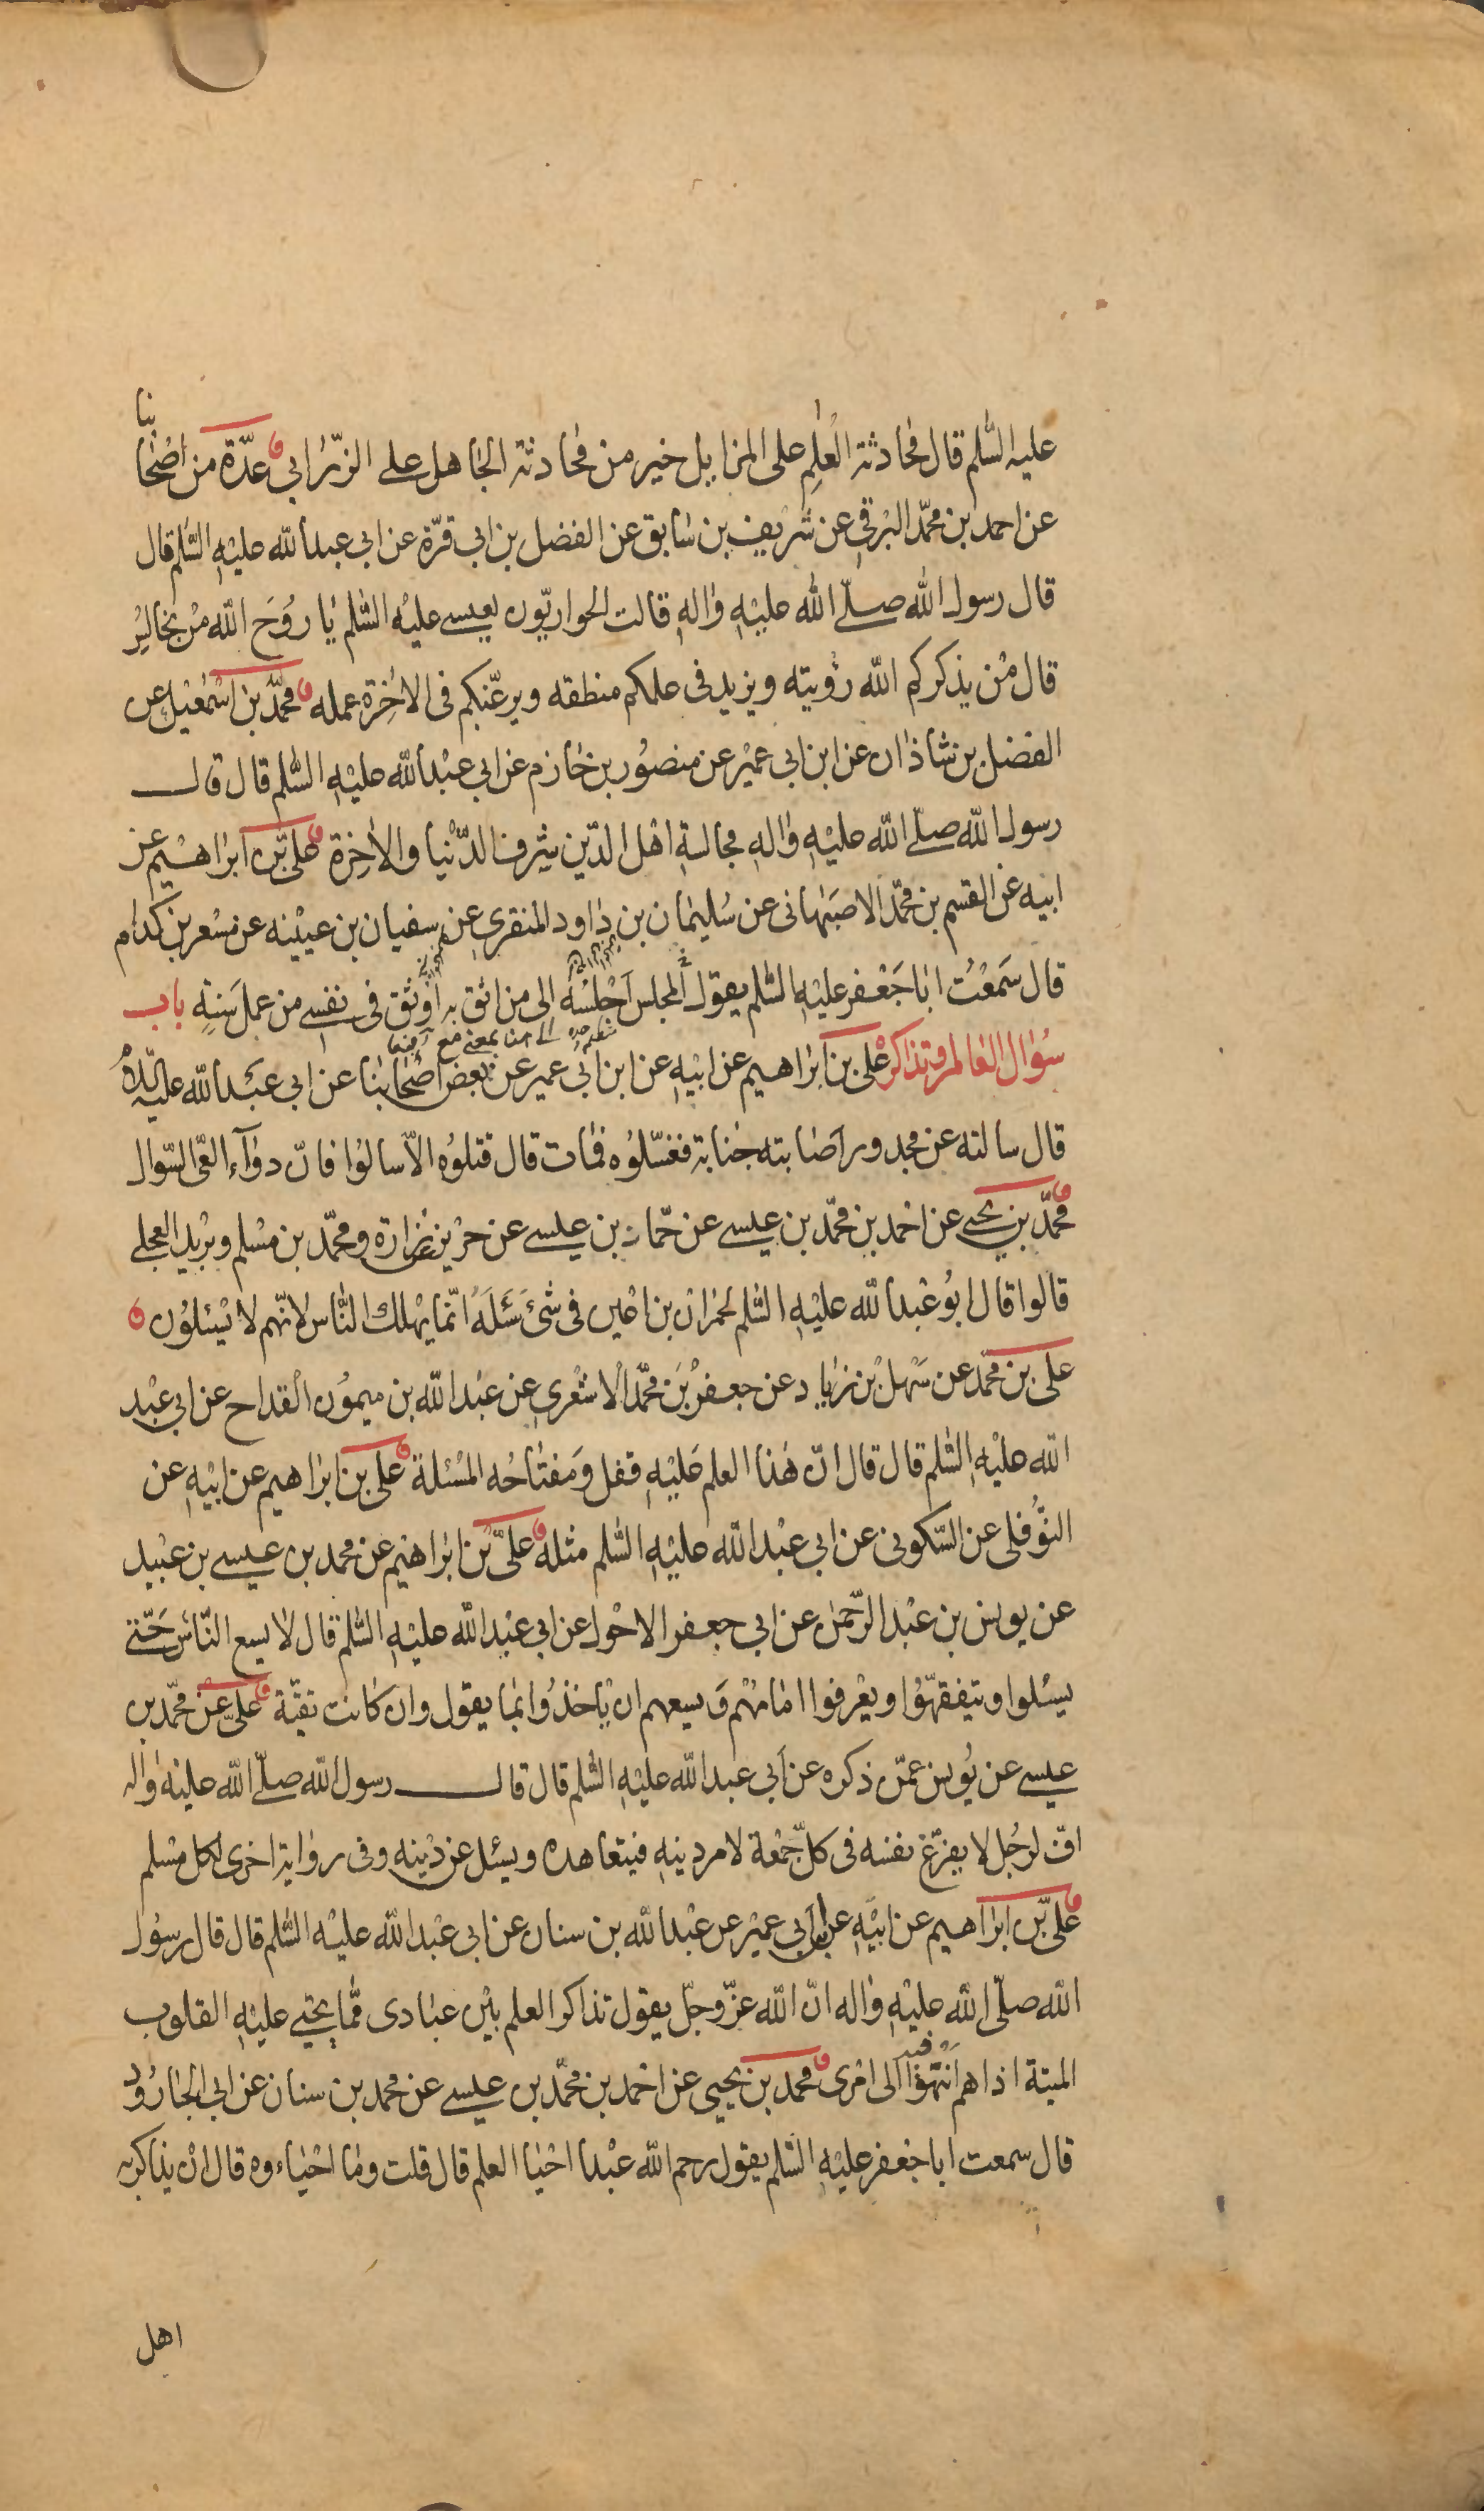 عليه السّلم قال محادثة العٰلِمِ على المزابل خير من محادثة الجاهل على الزّرابى عدّة من اصحابنا
عن احمد بن محمّد البرقي عن شريف بن سٰابق عن الفضل بن ابى قرّة عن ابى عبدالله عليهِ السّلم قال
قال رسول الله صلّى الله عليْهِ واٰلهِ قالت الحواريّون لعيسى عليْه السّلم يٰا رُوحَ الله مَنْ نجالِسُ
قال مَنْ يذكركم الله رؤيته ويزيد فى علمكم منطقه ويرغّبكم فى الاٰخِرة عمله محمّد بن اسْمٰعيْل عن
الفضل بن شاذٰان عن ابن ابى عميْر عن منصوُر بن حٰازم عن ابى عبْدالله عليْهِ السّلم قال قال
رسول الله صلّى الله عليْهِ واٰلهِ مجالسةِ اهْل الدّين شرف الدّنْيا والاٰخِرة علىّ بن ابرٰاهيْم عن
ابيه عن القسم بن محمّد الاصبَهانى عن سُليمٰان بن دٰاود المنقرى عن سفيان بن عيَيْنه عن مسْعر بن كدٰام
قال سَمعْتُ ابٰا جَعْفر عليْهِ السّلم يقول المجلس اَجْلسُهُ الى من اثق به اوْثق فى نفسى من عمل سَنةٍ باب
سُؤال العٰالم وتذاكره علىّ بن ابرٰاهيم عن ابيْهِ عن ابن ابى عمير عن بعض اصْحٰابنا عن ابى عبْدالله عليْهِ السّلم
قال سالته عن مجدور اصٰابته جنابة فغسّلوُه فمٰات قال قتلوُه الاّ سالوُا فانّ دوٰآء العىّ السّوال
محمّد بن يحيى عن احْمد بن محمّد بن عيسى عن حمّاد بن عيسى عن حرْيز عن زرارة ومحمّد بن مسْلم وبرْيد العجلى
قالوا قال ابوُ عبْدالله عليْهِ السّلم لحمرٰان بن اعْين فى شئ سَئَلَهُ انّما يهْلك النّاس لانّهم لا يسْئلوُن
على بن محمّد عن سَهْل بْن زيٰاد عن جعفر بْن محمّد الاشعْرى عن عبْدالله بن ميموُن القداح عن ابى عبْد
الله عليْهِ السّلم قال قال انّ هٰذا العلم عَليْهِ قفل وَمفتٰاحُه المسْئلة على بن ابرٰاهيم عن ابيْهِ عن
النّوْفلى عن السّكونى عن ابى عبْدالله عليْهِ السّلم مثله علىّ بْن ابرٰاهيم عن محمد بن عيسى بن عبْيد
عن يونس بن عبْد الرّحمٰن عن ابى جعفر الاحْول عن ابى عبْدالله عليْهِ السّلم قال لا يسع النّاس حَتّى
يسْئلوا ويتفقهّوُا ويعْرفوا امٰامَهُمْ وَيسعهم ان يٰاخذوُا بمٰا يقول وان كٰانت تقيّة علىّ عن محمّد بن
عيسى عن يوُنس عمّن ذكره عن ابى عبدالله عليْهِ السّلم قال قال رسول الله صلّى الله عليْهِ واٰله
افّ لرجُل لا يفرّغ نفسه فى كلّ جمْعة لامر دينِهِ فيتعٰاهده ويسئل عن دْينه وفى روٰاية اخرى لكل مسْلم
علىّ بن ابرٰاهيم عن ابيْهِ عن ابن ابى عميْر عن عبْدالله بن سنان عن ابى عبْدالله عليْه السّلم قال قال رسوُل
الله صلّى الله عليْهِ واٰله انّ الله عزّوجلّ يقول تذاكر العلم بيْن عبٰادى ممّا يحيى عليْهِ القلوب
الميتة اذا هم انْتهَوْا فيه الى امْرى محمد بن يحيى عن احْمد بن محمّد بن عيسى عن محمد بن سنان عن ابى الجٰارُود
قال سمعت ابا جعْفر عليْهِ السّلم يقول رحم الله عبْدا احْيٰا العلم قال قلت ومٰا احْيٰاءوه قال انْ يذٰاكر به
اهل